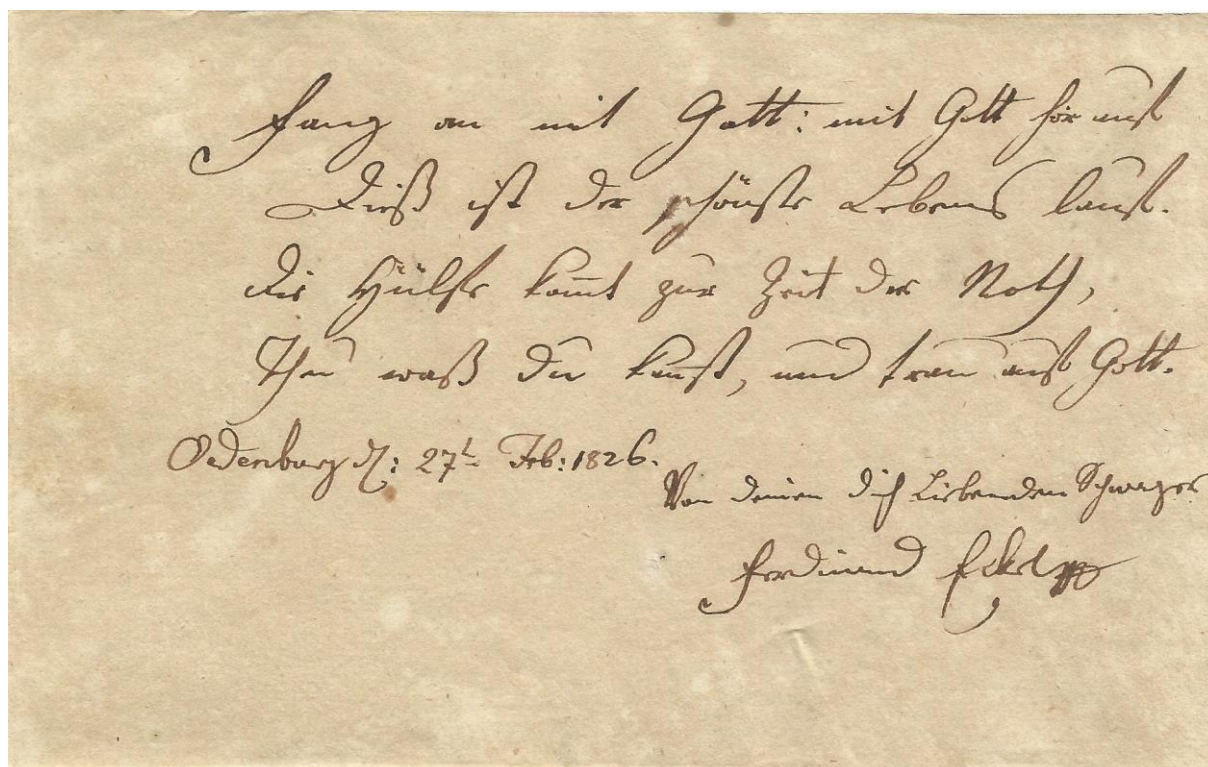 Fang an mit Gott: mit Gott hör auf
Dieß ist der schönste Lebens lauf.
Die Hülfe kom̄t zur Zeit der Noth,
Thu waß du kanst, und trau auf Gott.
Oedenburg d: 27t Feb: 1826.
Von deinen dich Liebenden Schwager
Ferdinand Eckel